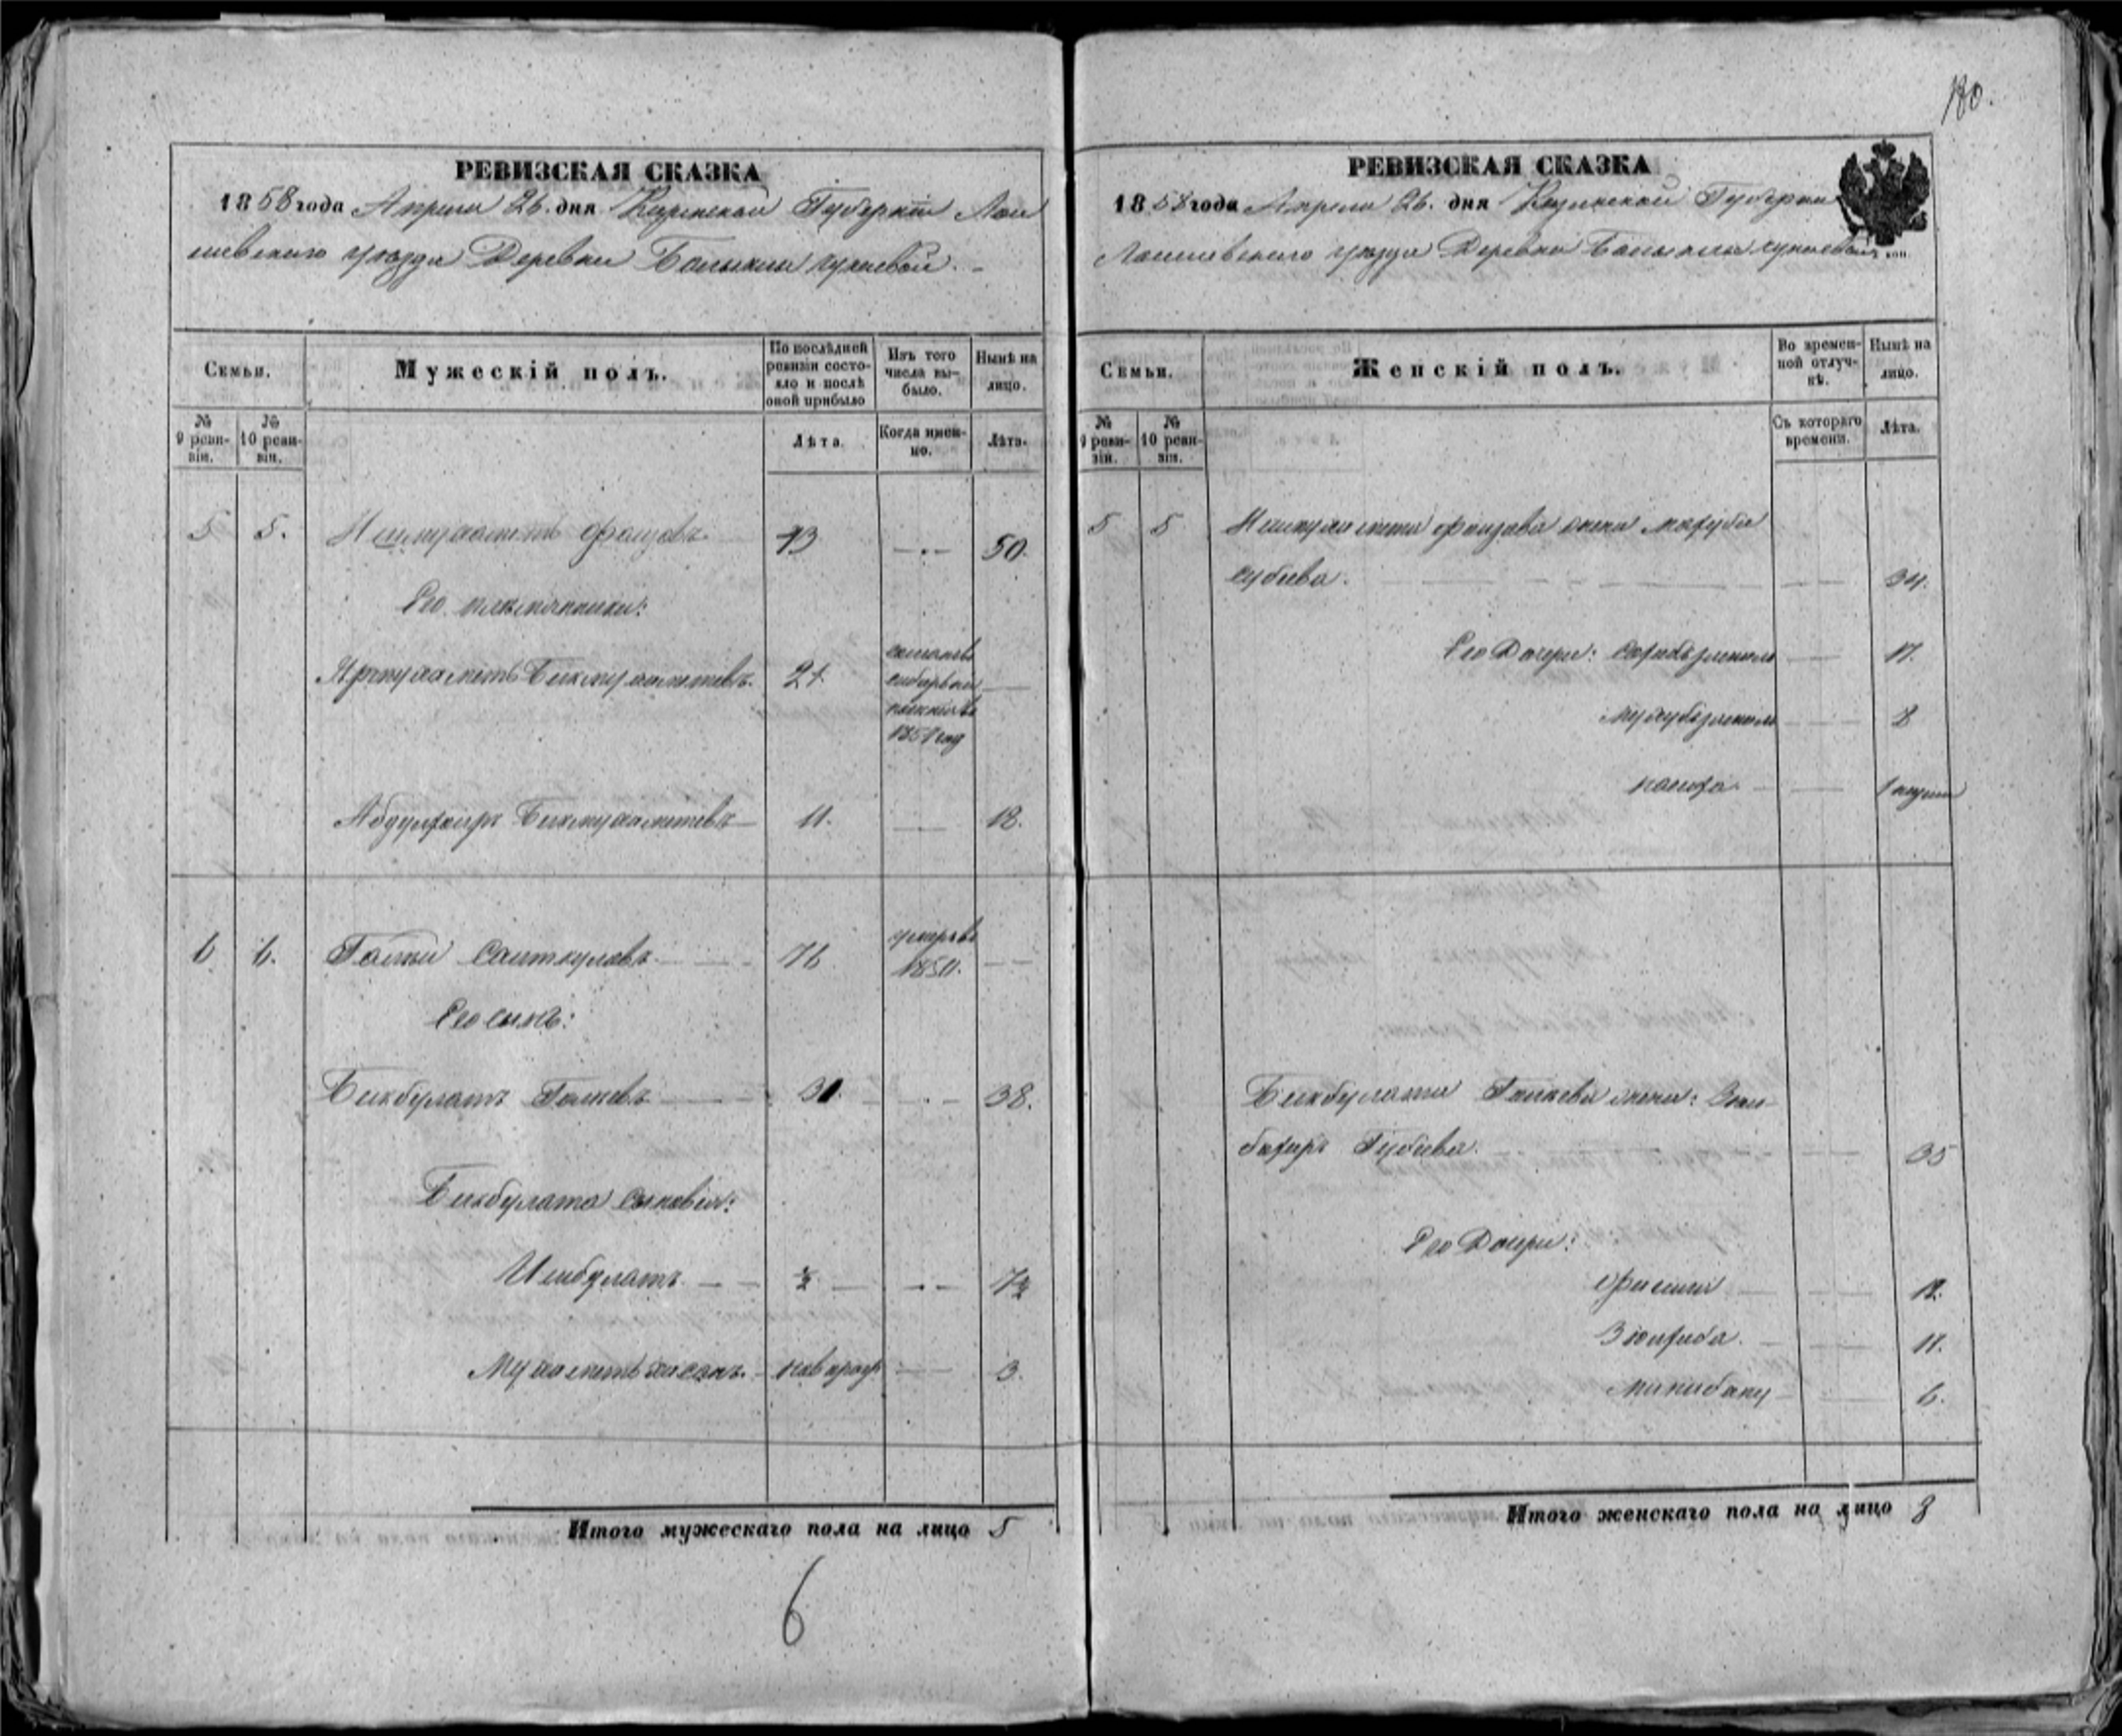 180.
РЕВИЗСКАЯ СКАЗКА
1858 года Апреля 26. дня Казанской Губернии Лаи
шевского уезда Деревни
Семьи.
Мужескій полъ.
По послѣдней ревизіи состояло и послѣ оной прибыло
Изъ того числа выбыло.
Нынѣ на лицо.
№ 9 ревизіи.
№ 10 ревизіи.
Лѣта.
Когда именно.
Лѣта.
5 5. Ишмухаметъ Фаизовъ 43 — 50.
Его племянники:
Ярмухаметъ Бикмухаметевъ. 21.
1851 году
Абдулхаиръ Бикмухаметевъ 11. — 18.
6 6. Галѣи Саиткуловъ 76 умеръ въ 1850. —
Его сынъ:
Бикбулатъ Галѣевъ 30. — 38.
Бикбулата сыновья:
Ишбулатъ ½ — 7½
Мухаметъ хасанъ. новорож — 3.
Итого мужескаго пола на лицо 5
6
РЕВИЗСКАЯ СКАЗКА
1858 года Апреля 26. дня Казанской Губернии
Лаишевского уезда Деревни
коп.
Семьи.
Женскій полъ.
Во временной отлучкѣ.
Нынѣ на лицо.
№ 9 ревизіи.
№ 10 ревизіи.
Съ котораго времени.
Лѣта.
5 5 Ишмухамета Фаизова жена
34.
Его Дочери: 17.
8
1
Бикбулата Галѣева жена:
35
Его Дочери:
18.
11.
Минибану 6.
Итого женскаго пола на лицо 8